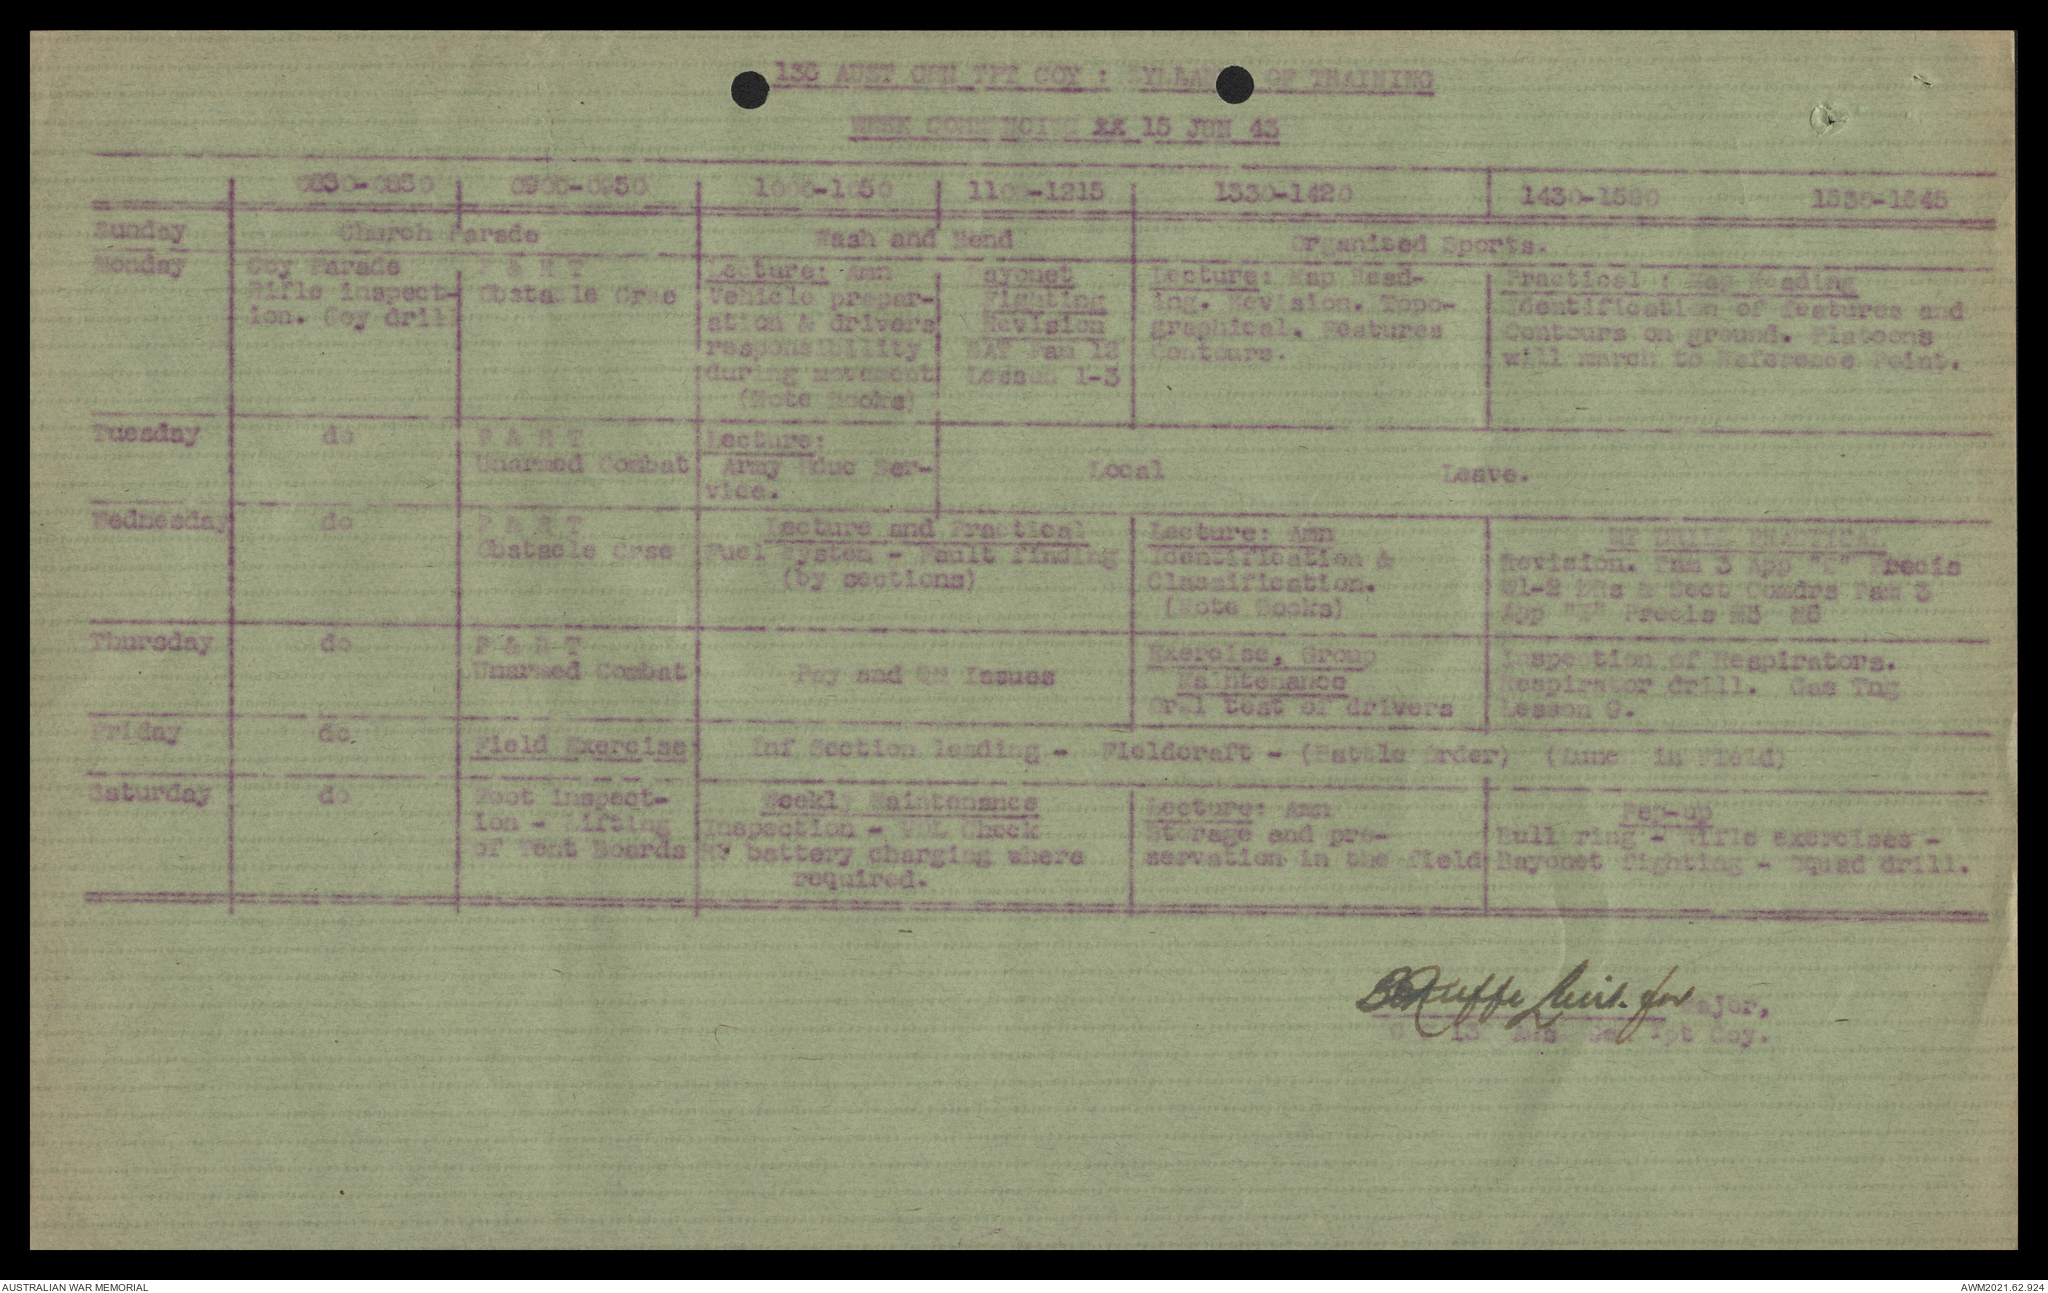 136 AUST GEN TPT COY : SYLLABUS OF TRAINING
WEEK COMMENCING xx 15 JUN 43
0830-0850 0900-0950 1000-1050 1100-1215 1330-1420 1430-1520 1530-1645
Sunday Church Parade Wash and Mend Organised Sports.
Monday Coy Parade
Rifle inspect-
ion. Coy drill
P & R T
Obstacle Crse
Lecture: Amn
Vehicle prepar-
ation & drivers
responsibility
during movement
(Note Books)
Bayonet
Fighting
Revision
SAT Pam 12
Lesson 1-3
Lecture: Map Read-
ing. Revision. Topo-
graphical. Features
Contours.
Practical : Map Reading
Identification of features and
Contours on ground. Platoons
will march to Reference Point.
Tuesday do
P & R T
Unarmed Combat
Lecture:
Army Educ Ser-
vice.
Local Leave.
Wednesday do
P & R T
Obstacle Crse
Lecture and Practical
Fuel System - Fault finding
(by sections)
Lecture: Amn
Identification &
Classification.
(Note Books)
MT DRILL PRACTICAL
Revision. Pam 3 App "C" Precis
1-2 & Sect Comdrs Pam 3
App Precis
Thursday do
P & R T
Unarmed Combat
Pay and QM Issues
Exercise, Group
Maintenance
Oral test of drivers
Inspection of Respirators.
Respirator drill. Gas Tng
Lesson 9.
Friday do Field Exercise Inf Section leading - Fieldcraft - (Battle Order) (Lunch in Field)
Saturday do
Foot inspect-
ion - Lifting
of Tent Boards
Weekly Maintenance
Inspection - Check
battery charging where
required.
Lecture: Amn
Storage and pre-
servation in the field
Pep-up
Bull ring - Rifle exercises -
Bayonet fighting - Squad drill.
Lieut. for Major,
136 Aus Gen Tpt Coy.
AUSTRALIAN WAR MEMORIAL
AWM2021.62.924